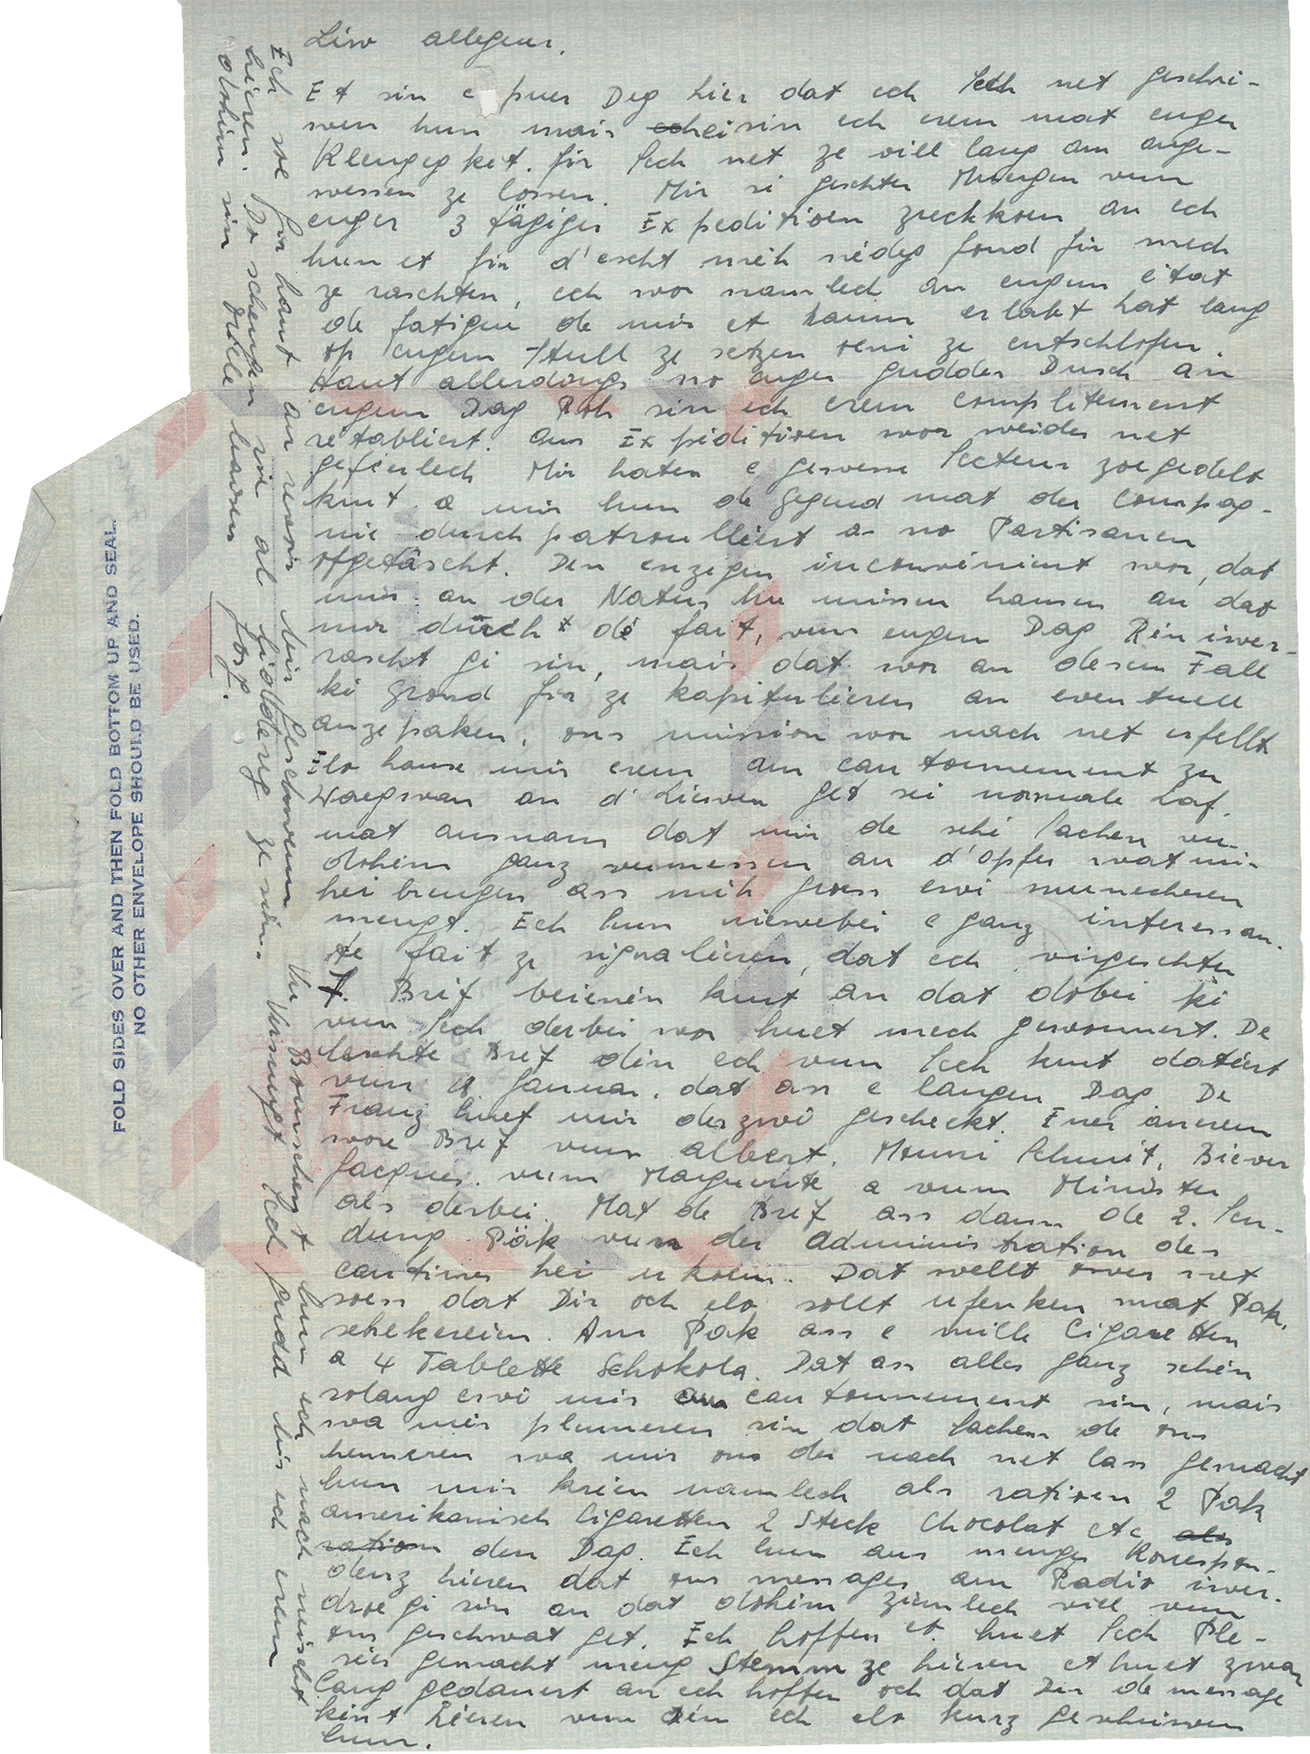 Liw allegeur.
Et sin e puer Deg hier dat ech Iech net geschri-
wen hun mais hei sin ech erem mat enger
Klengegket. fir Iech net ze vill lang am onge-
wessen ze lossen. Mir si geschter Muergen vun
enger 3 tägiger Expeditioen zreckkoen an ech
hun et fir d'escht méh nédeg fond fir mech
ze raschten, ech wor namlech an engem état
de fatigue de mir et kaum erlabt hat lang
op engem Stull ze setzen oeni ze entschlofen.
Haut allerdings no enger gudder Dusch an
engem Dag Roh sin ech erem complètement
retabliert. Ons Expeditioen wor weider net
geféierlech Mir haten e gewesse Secteur zoegedelt
krut a mir hun de Gegend mat der Compag-
nie durchpatrouillert a no Partisanen
ofgetäscht. Den enzegen inconvénient wor, dat
mir an der Natur hu missen hausen an dat
mir durch de fait, vum engen Dag Rén iwer-
rascht gi sin, mais dat wor an desem Fall
ké grond fir ze kapituléren an eventuell
anzepaken, ons mission wor nach net erfellt
Elo hause mir erem am cantonnement zu
Waegwan an d'Liewen get séi normale Laf.
mat ausnam dat mir de schéi Sachen vu
dohém ganz vermessen an d'Opfer wat mir
hei brengen ass méh gross ewi munecheren
mengt. Ech hun niewebei e ganz interessan-
te fait ze signaléren, dat ech virgeschter
7. Bréf beienén krut an dat dobei ké
vun Iech derbei wor huet mech gewonnert. De
leschte Bréf dén ech vun Iech krut datéert
vum 4. Januar, dat ass e langen Dag. De
Franz huet mir der zwé gescheckt. Ener aneren
wore Bréf vum Albert, Mouni Schmit, Biever
Jacques, vum Marguerite a vum Minister
als derbei. Mat de Bréf ass dann de 2. Sen-
dung Päk vun der Administration des
cantines hei ukoem. Dat wellt ower net
soen dat Dir och elo sollt ufenken mat Pak.
schekereien. Am Pak ass e mille Cigaretten
a 4 Tablette Schokola. Dat ass alles ganz schén
solang ewi mir am cantonnement sin, mais
wa mir plënneren sin dat Sachen de ons
hënneren wa mir ons der nach net lass gemacht
hun mir kréien namlech als ratioen 2 Pak
amerikanisch Cigaretten 2 Steck Chocolat etc als
ration den Dag. Ech hun aus menger Korrespon-
denz héieren dat ons messages am Radio iwer-
droe gi sin an dat dohém zimlech vill vun
ons geschwat get. Ech hoffen et huet Iech Ple-
séier gemacht meng Stemm ze héieren et huet zwar
lang gedauert an ech hoffen och dat Dir de message
kënnt héieren vun dén ech elo kurz geschriwen
hun.
Ech soe fir haut an revoir bis geschwenn. Vu Bourscheid hun ech nach neischt
héieren. Do schengen se al ze sin. Verwengt Iech gudd bis ech erem
dohém sin Ville bausen
Josf.
FOLD SIDES OVER AND THEN FOLD BOTTOM UP AND SEAL.
NO OTHER ENVELOPE SHOULD BE USED.